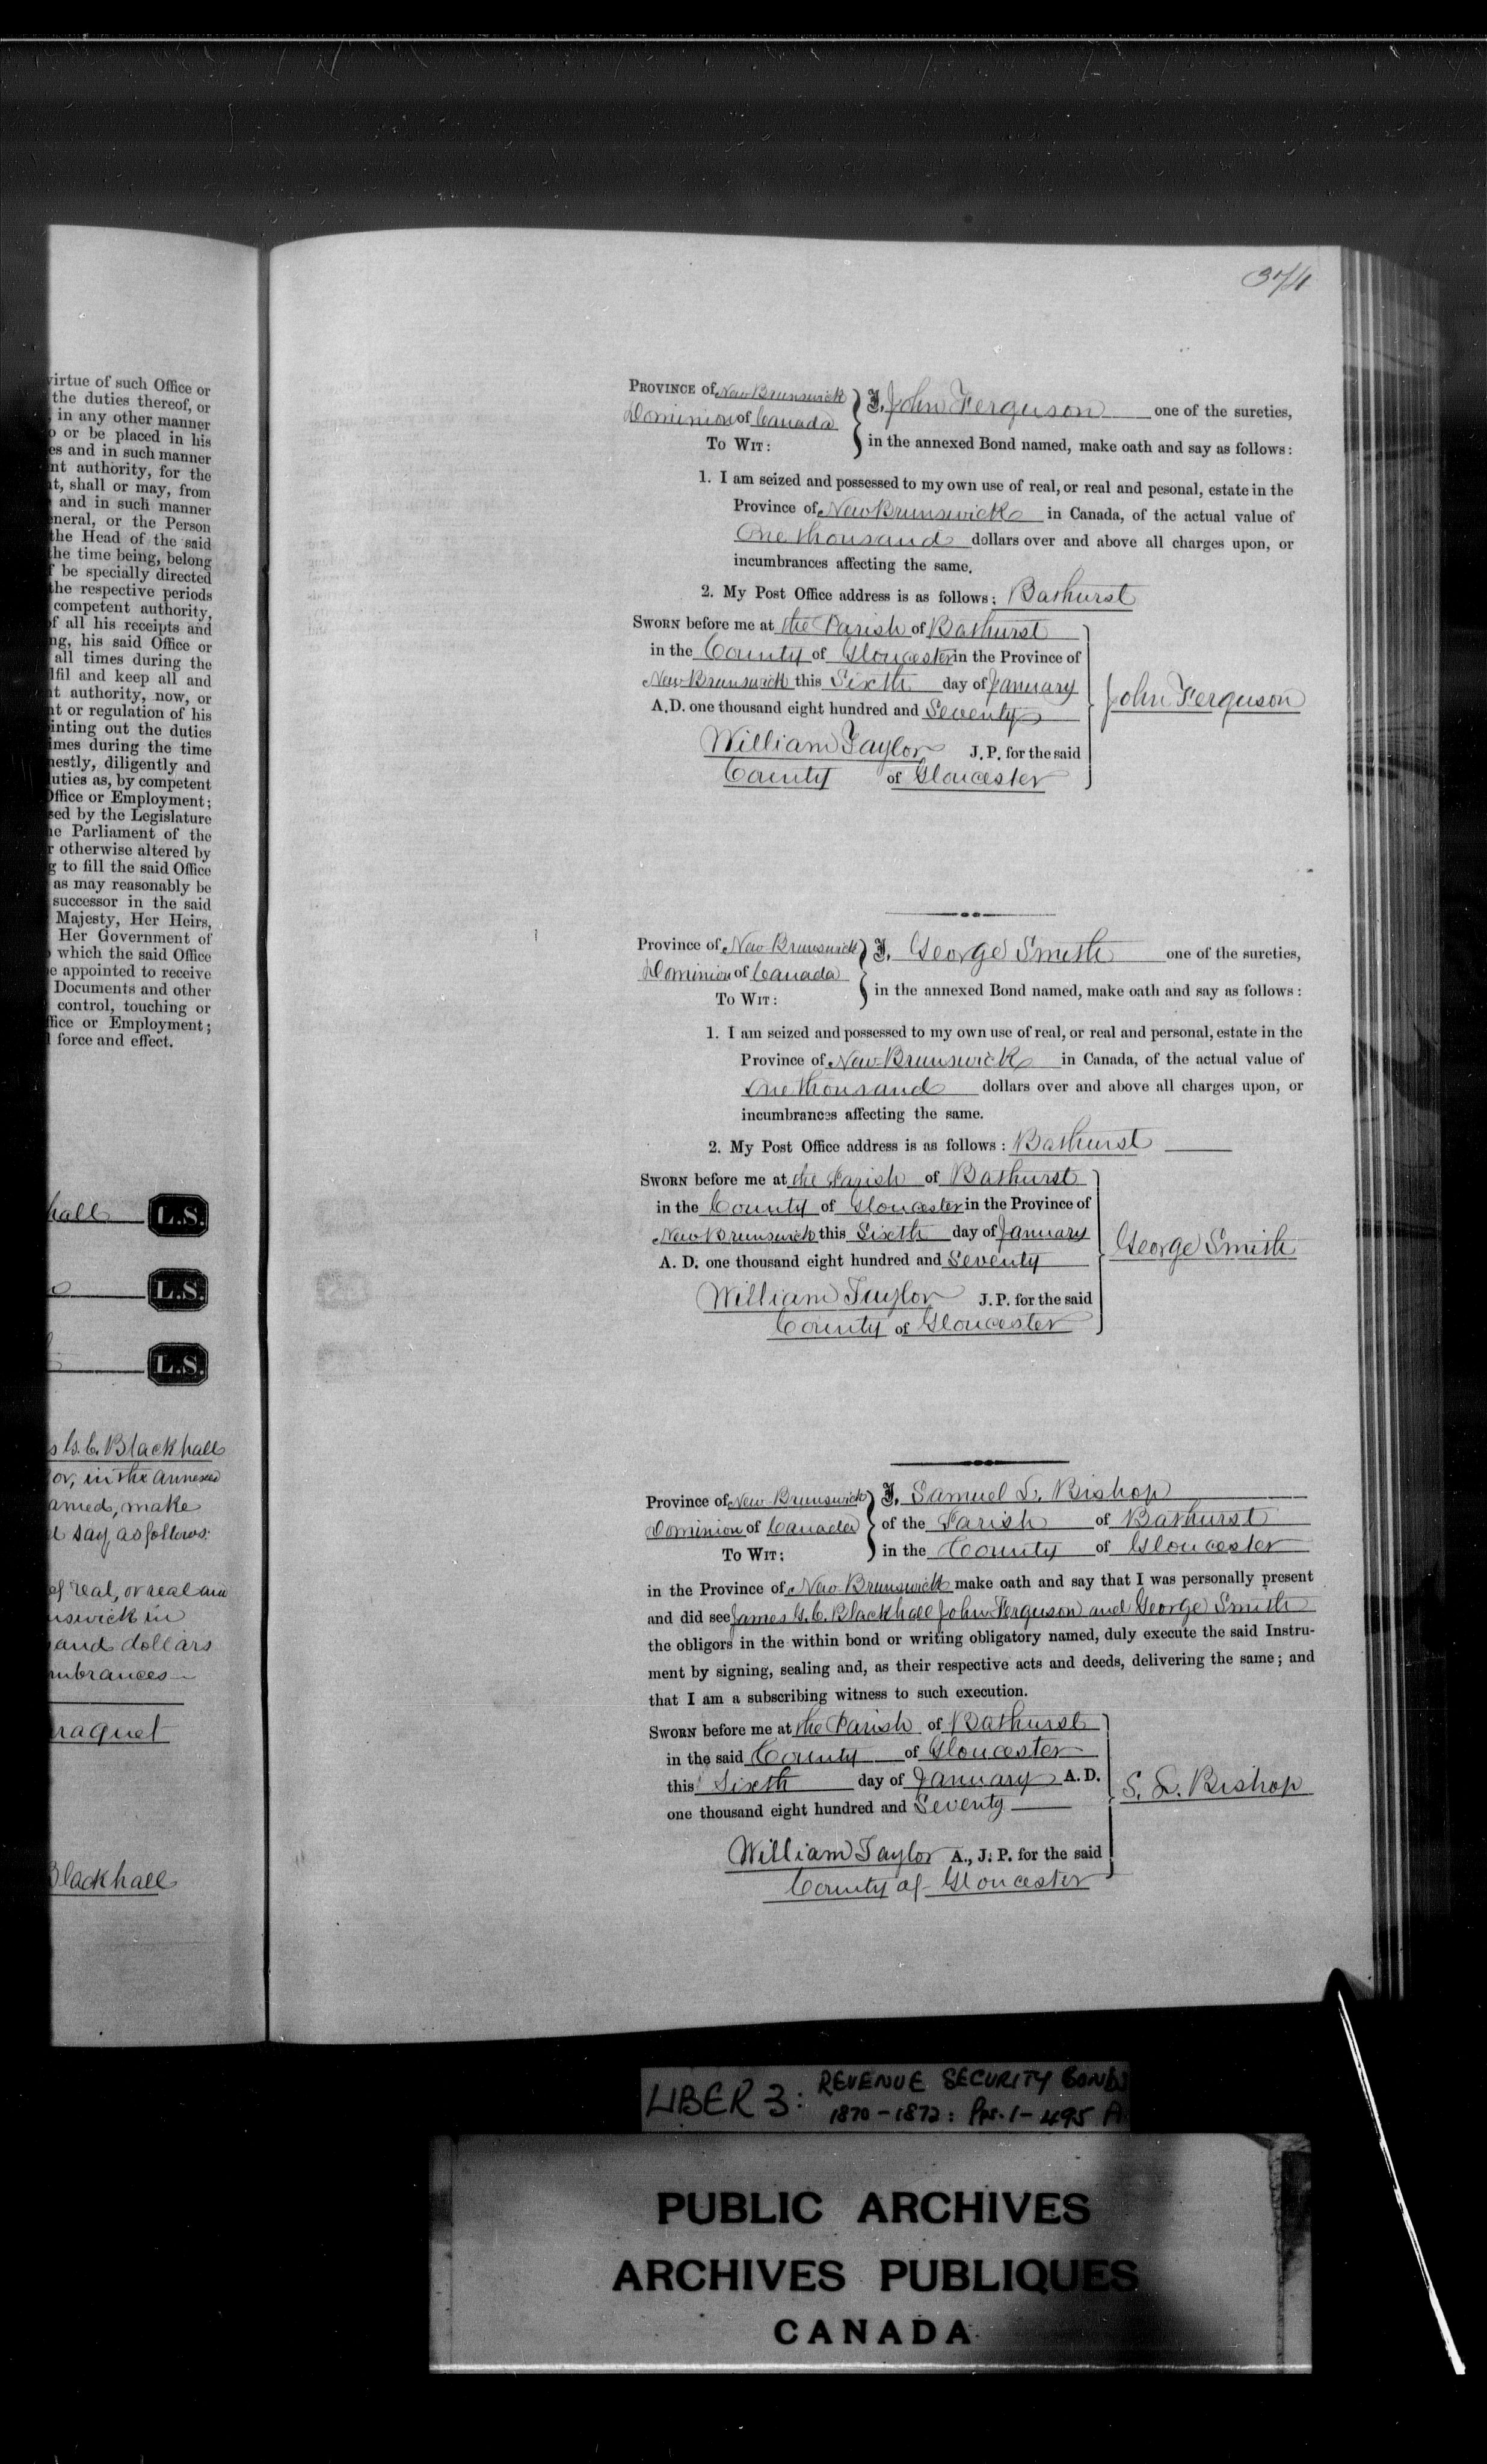 virtue of such Office or
the duties thereof, or
in any other manner
or be placed in his
es and in such manner
nt authority, for the
t, shall or may, from
and in such manner
neral, or the Person
the Head of the said
the time being, belong
f be specially directed
the respective periods
competent authority,
f all his receipts and
ng, his said Office or
all times during the
lfil and keep all and
nt authority, now, or
nt or regulation of his
inting out the duties
imes during the time
nestly, diligently and
uties as, by competent
Office or Employment;
sed by the Legislature
ne Parliament of the
r otherwise altered by
g to fill the said Office
as may reasonably be
successor in the said
Majesty, Her Heirs,
Her Government of
which the said Office
e appointed to receive
Documents and other
control, touching or
ffice or Employment;
l force and effect.
hall L.S.
L.S.
L.S.
s G. C. Blackhall
or, in the annexed
amed, make
d say, as follows:
of real, or real and
nswick in
sand dollars
mbrances
raquet
Blackhall
374
PROVINCE of New Brunswick } I, John Ferguson one of the sureties,
Dominion of Canada
TO WIT: } in the annexed Bond named, make oath and say as follows:
1. I am seized and possessed to my own use of real, or real and pesonal, estate in the
Province of New Brunswick in Canada, of the actual value of
One thousand dollars over and above all charges upon, or
incumbrances affecting the same.
2. My Post Office address is as follows: Bathurst
SWORN before me at the Parish of Bathurst
in the County of Gloucester in the Province of
New Brunswick this Sixth day of January
A.D. one thousand eight hundred and Seventy
John Ferguson
William Taylor J. P. for the said
County of Gloucester
Province of New Brunswick } I, George Smith one of the sureties,
Dominion of Canada
TO WIT: } in the annexed Bond named, make oath and say as follows:
1. I am seized and possessed to my own use of real, or real and personal, estate in the
Province of New Brunswick in Canada, of the actual value of
One thousand dollars over and above all charges upon, or
incumbrances affecting the same.
2. My Post Office address is as follows: Bathurst
SWORN before me at the Parish of Bathurst
in the County of Gloucester in the Province of
New Brunswick this Sixth day of January
George Smith
A. D. one thousand eight hundred and Seventy
William Taylor J. P. for the said
County of Gloucester
Province of New Brunswick } I, Samuel L. Bishop
Dominion of Canada } of the Parish of Bathurst
TO WIT: } in the County of Gloucester
in the Province of New Brunswick make oath and say that I was personally present
and did see James G. C. Blackhall John Ferguson and George Smith
the obligors in the within bond or writing obligatory named, duly execute the said Instru-
ment by signing, sealing and, as their respective acts and deeds, delivering the same; and
that I am a subscribing witness to such execution.
SWORN before me at the Parish of Bathurst
in the said County of Gloucester
this Sixth day of January A. D.
S. L. Bishop
one thousand eight hundred and Seventy
William Taylor A., J. P. for the said
County of Gloucester
LIBER 3: REVENUE SECURITY BONDS
1870-1872: PP. 1-495 A
PUBLIC ARCHIVES
ARCHIVES PUBLIQUES
CANADA